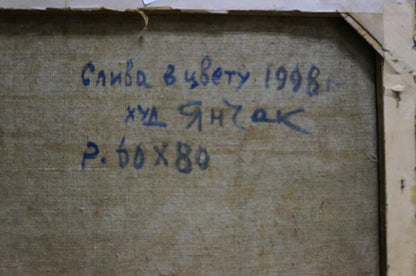 Слива в цвету 1998 г
худ Янчак
Р. 60 х 80